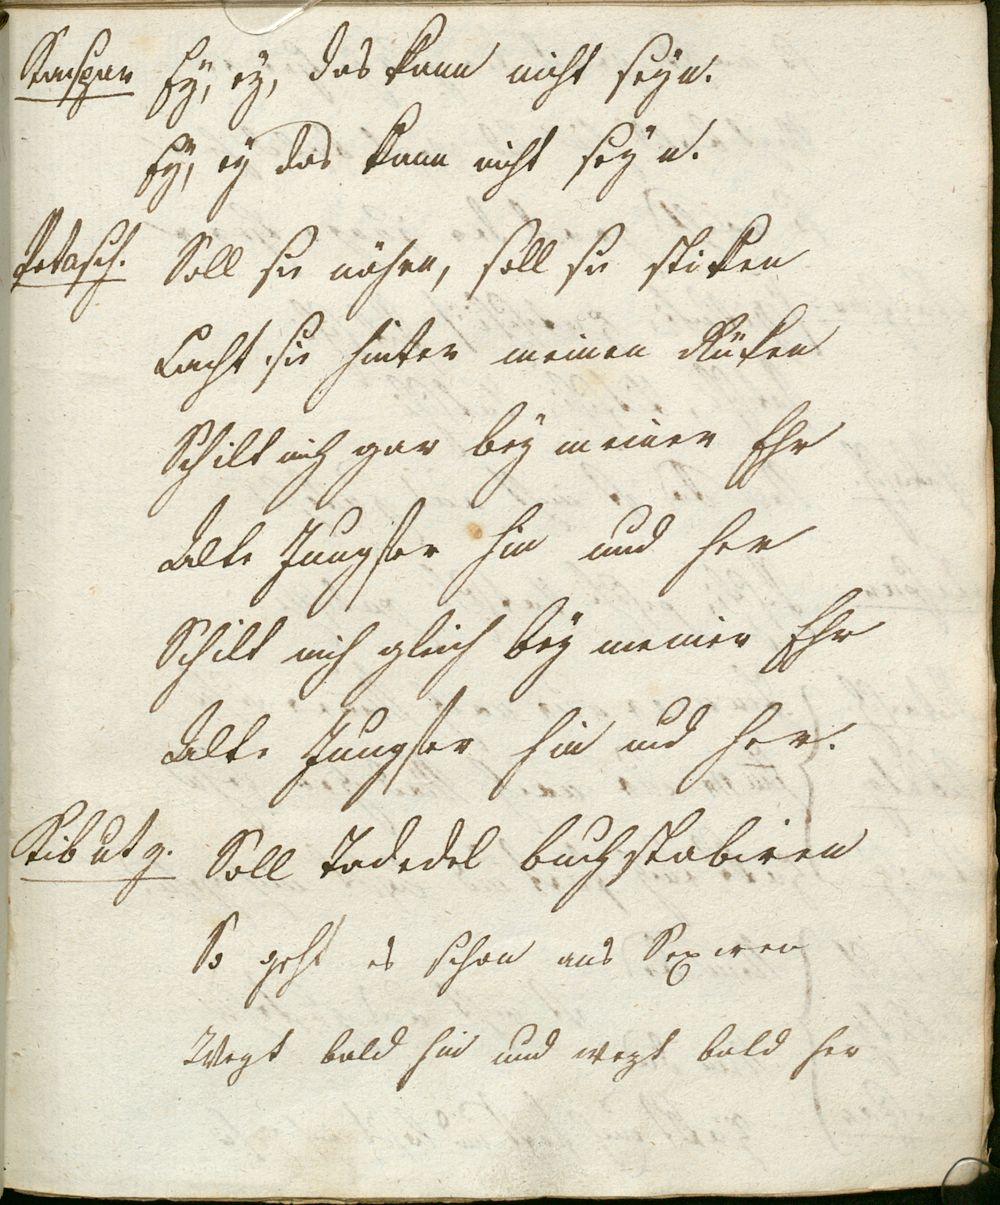 Kaspar Ey, ey, das kann nicht seyn.
Ey, ey das kann nicht seyn.
Petasch. Soll sie nähen, soll sie stiken
Lacht sie hinter meinen Rüken
Schilt mich gar bey meiner Ehr
Alte Jungfer hin und her
Schilt mich gleich bey meiner Ehr
Alte Jungfer hin und her.
Kibutz. Soll Tadedel buchstabiren
So geht es schon ans
Wezt bald hin und wezt bald her